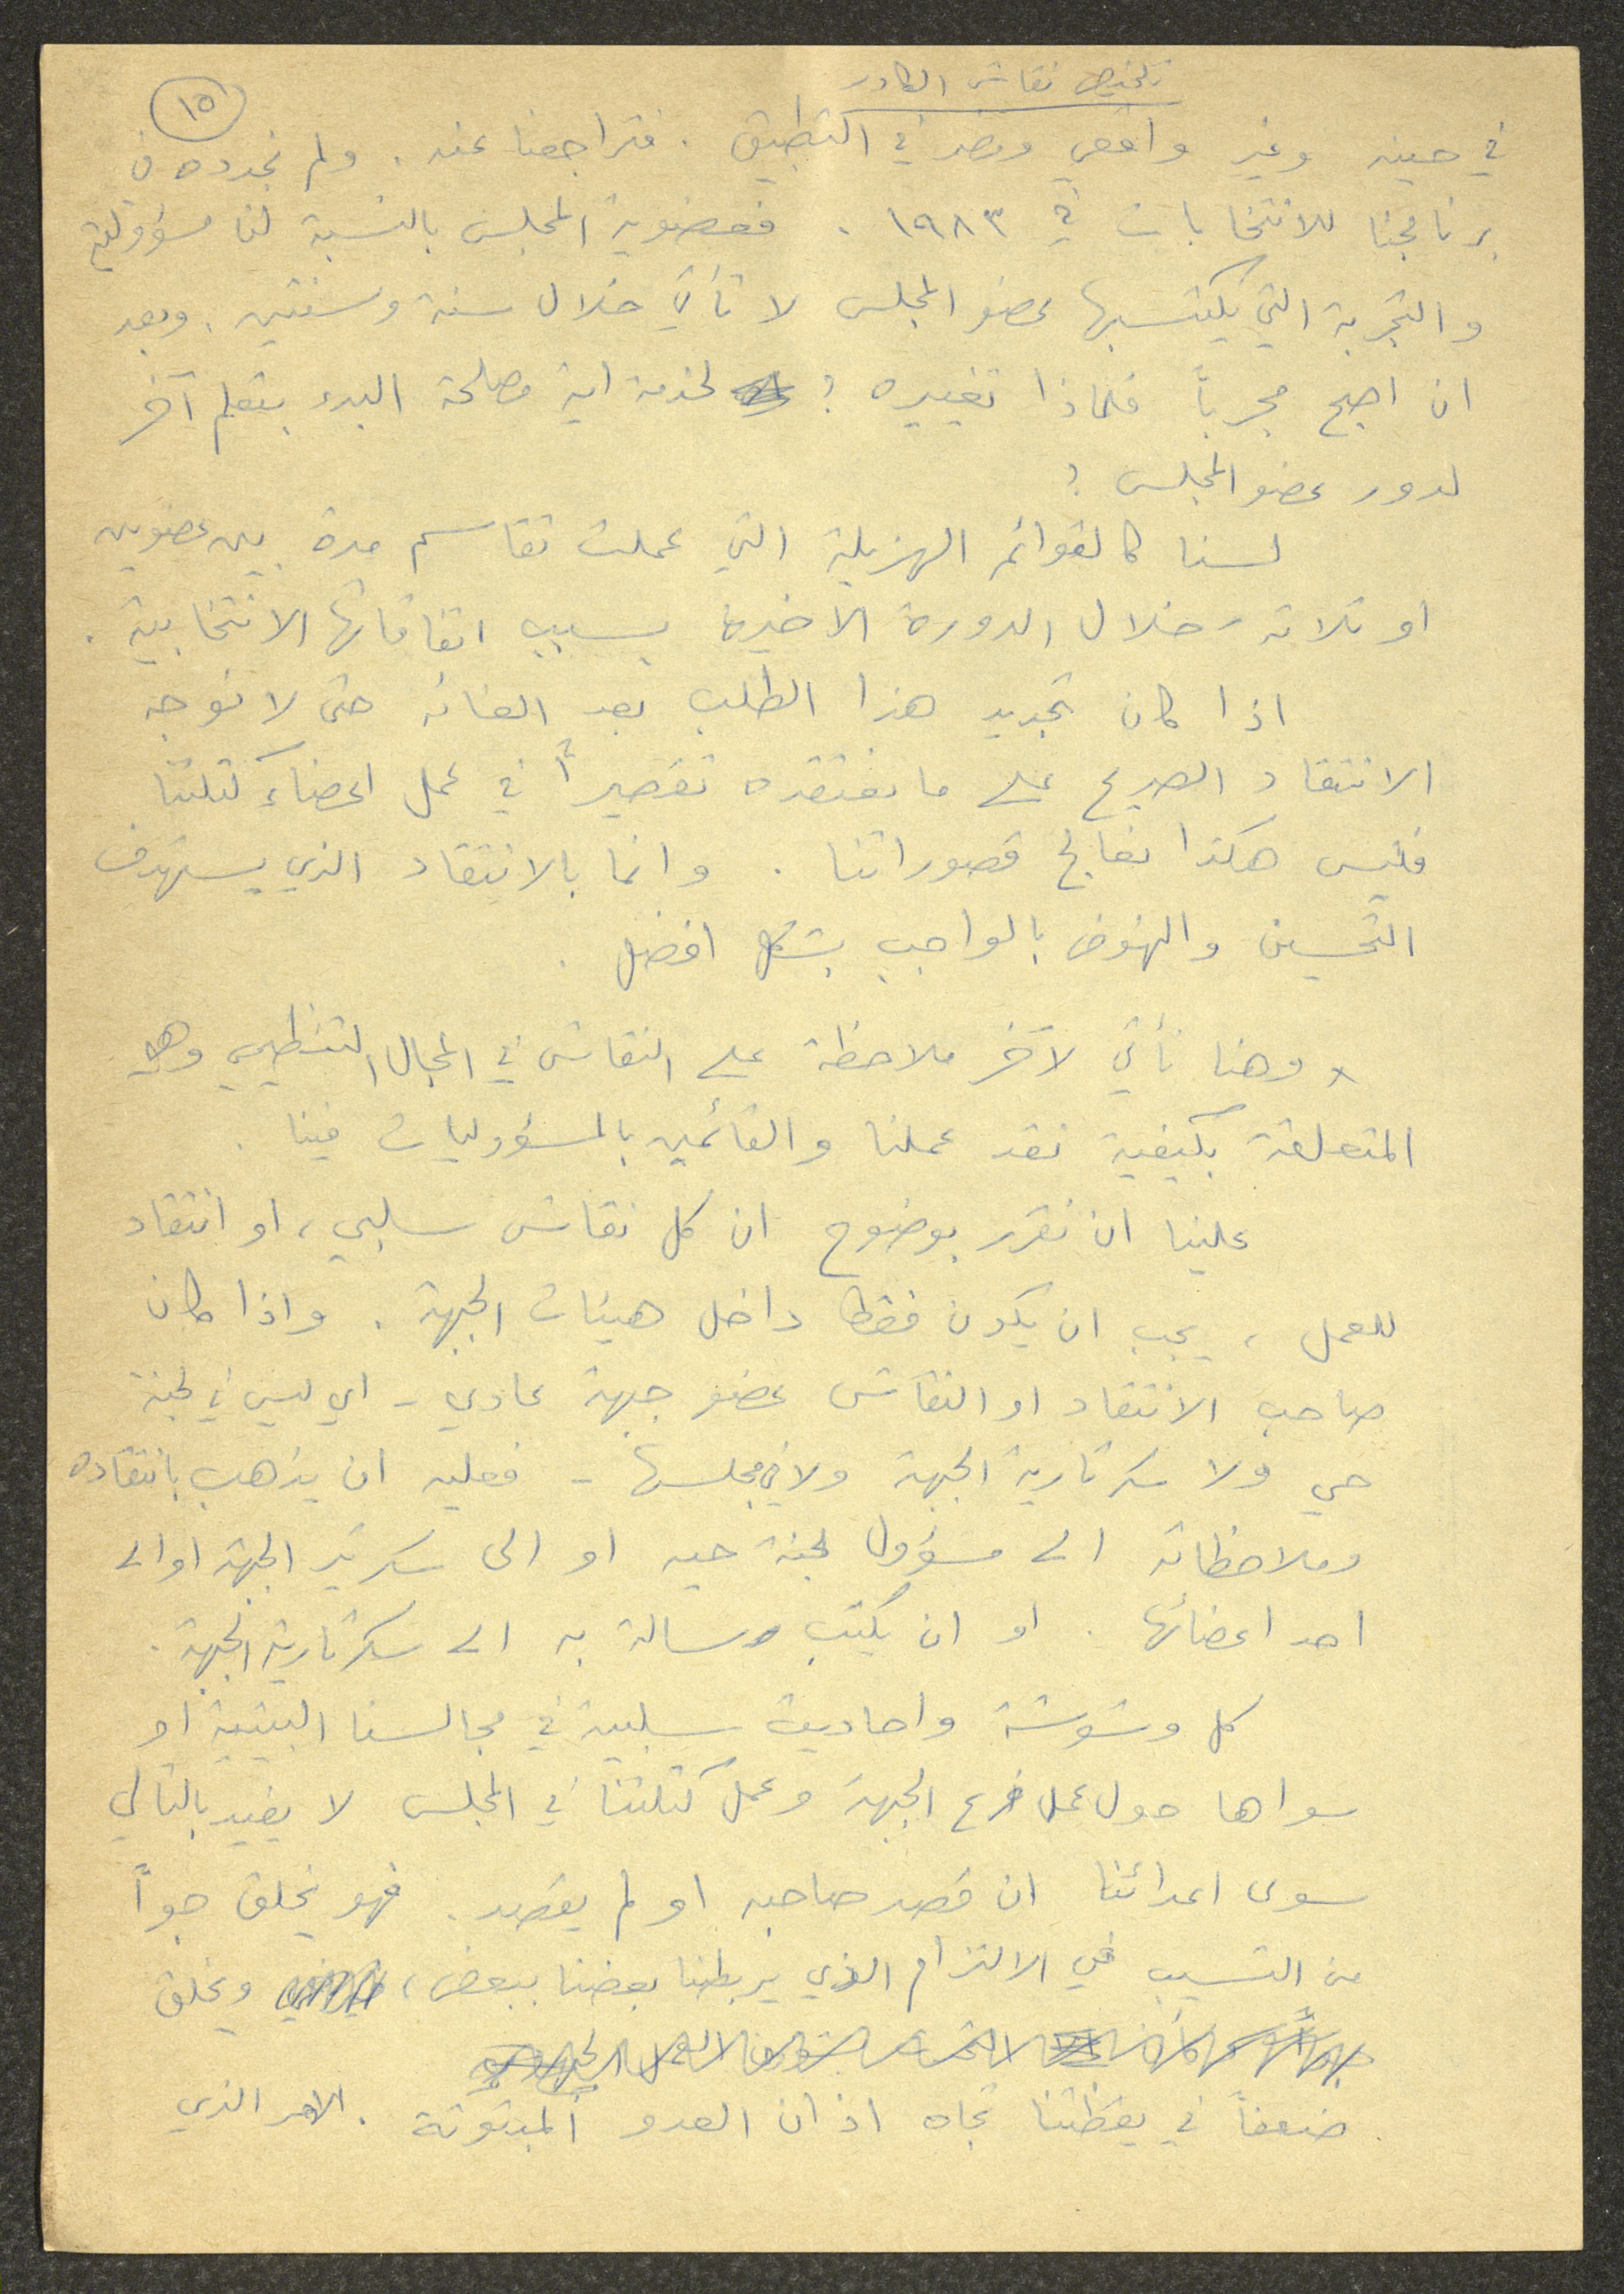 تلخيص نقاش الكادر
١٥
في حينه وغير واقعي ومضر في التطبيق . فتراجعنا عنه . ولم نجدده في
برنامجنا للانتخابات في ١٩٨٣ . فعضوية المجلس بالنسبة لنا مسؤولية
والتجربة التي يكتسبها عضو المجلس لا تأتي خلال سنة وسنتين . وبعد
ان اصبح مجرباً فلماذا تغييره ؟ لخدمة اية مصلحة البدء بتعلم آخر
لدور عضو المجلس ؟
لسنا كالقوائم الهزيلة التي عملت تقاسم مدة بين عضوين
او ثلاثة خلال الدورة الاخيرة بسبب اتفاقاتها الانتخابية .
اذا كان تجديد هذا الطلب بعد الغائه حتى لا نوجه
الانتقاد الصريح على ما نعتقده تقصيراً في عمل اعضاء كتلتنا
فليس هكذا نعالج قصوراتنا . وانما بالانتقاد الذي يستهدف
التحسين والنهوض بالواجب بشكل افضل .
وهنا نأتي لآخر ملاحظة على النقاش في المجال التنظيمي وهي
المتعلقة بكيفية نقد عملنا والقائمين بالمسؤوليات فينا .
علينا ان نقرر بوضوح ان كل نقاش سلبي ، او انتقاد
للعمل ، يجب ان يكون فقط داخل هيئات الجبهة . واذا كان
صاحب الانتقاد او النقاش عضو جبهة عادي - اي ليس في لجنة
حي ولا سكرتارية الجبهة ولا في مجلسها - فعليه ان يذهب بانتقاده
وملاحظاته الى مسؤول لجنة حيه او الى سكرتير الجبهة او الى
احد اعضائها . او ان يكتب رسالة به الى سكرتارية الجبهة .
كل وشوشة واحاديث سلبية في مجالسنا البيتية او
سواها حول عمل فرع الجبهة وعمل كتلتنا في المجلس لا يفيد بالتالي
سوى اعدائنا ان قصد صاحبه او لم يقصد . فهو يخلق جواً
من التسيب في الالتزام الذي يربطنا بعضنا ببعض ، ويخلق
ضعفاً في يقظتنا تجاه اذان العدو المبثوثة . الامر الذي